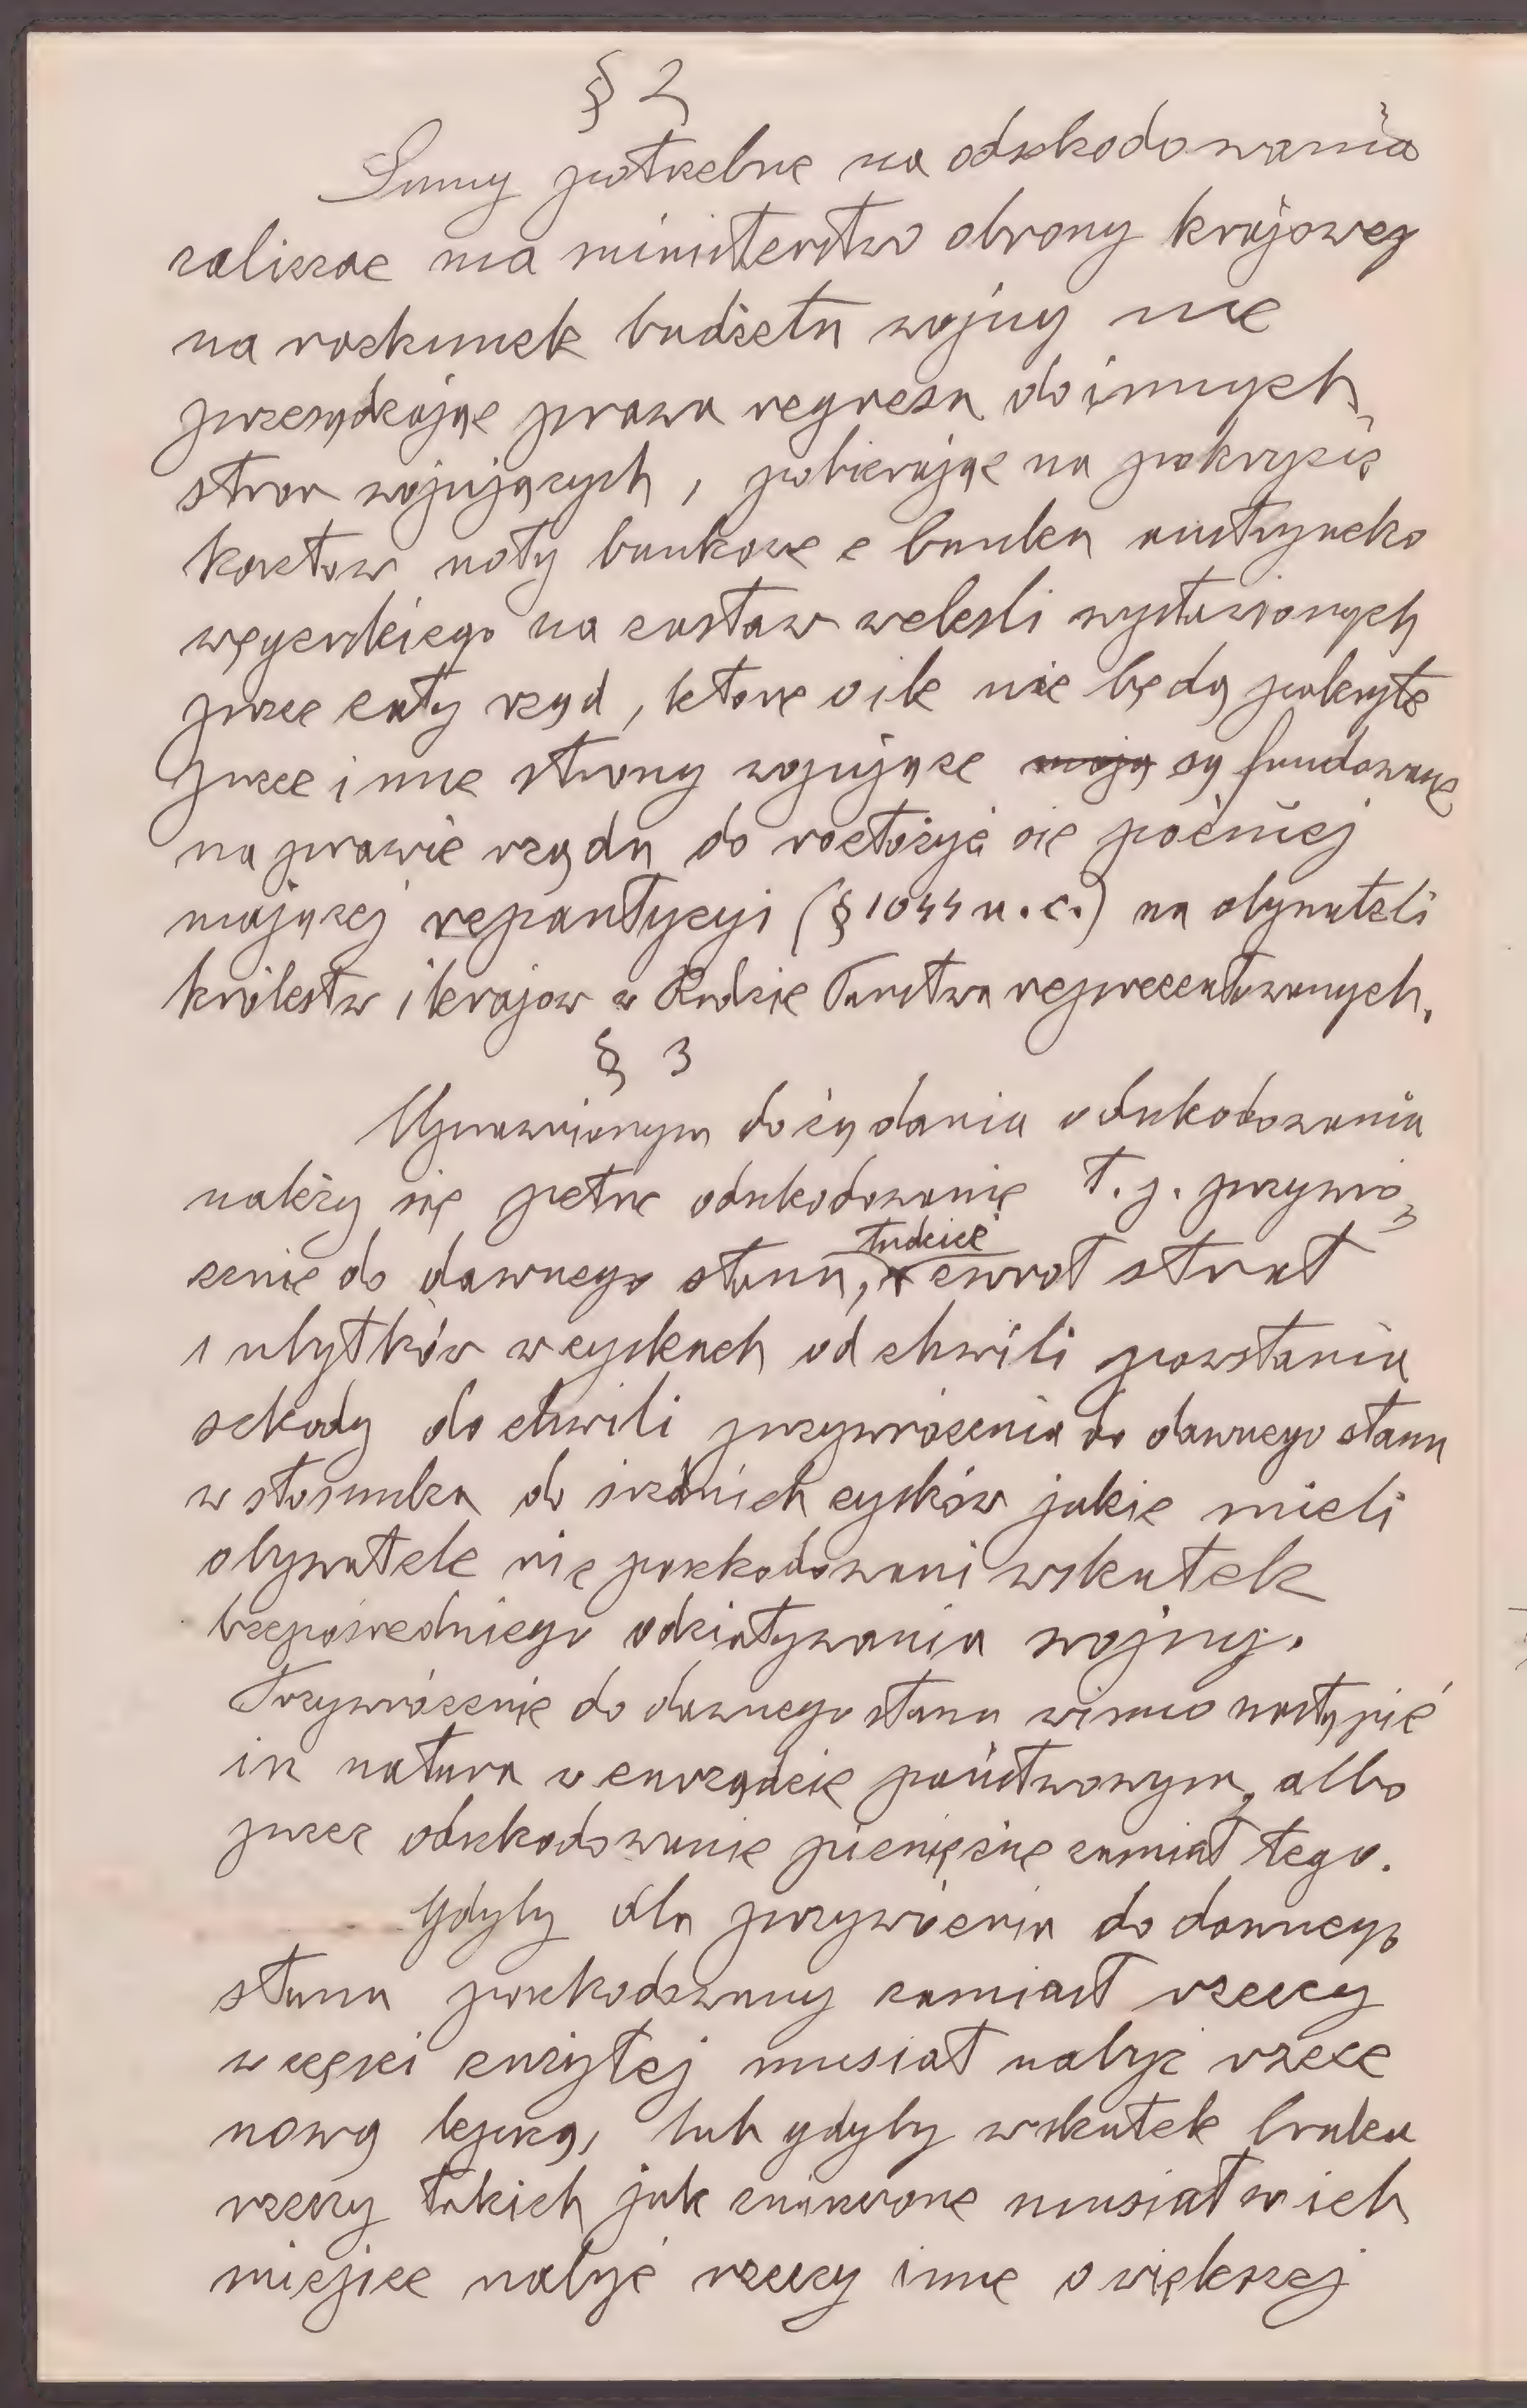 § 2
Sumy potrzebne na odszkodowania
zaliczać ma ministerstwo obrony krajowej
na rachunek budżetu wojny nie
przesądzając prawa regresu do innych
stron wojujących, pobierając na pokrycie
kosztów noty bankowe z banku austryacko
węgierskiego na zastaw weksli wystawionych
przez cały rząd, które o ile nie będą pokryte
przez inne strony wojujące mają są fundowane
na prawie rządu do rozłożyć się później
mającej repartycyi (§ 1044 u. c.) na obywateli
królestw i krajów w Radzie Państwa reprezentowanych.
§ 3
Uprawnionym do żądania odszkodowania
należy się pełne odszkodowanie t. j. przywró-
cenie do dawnego stanu, tudzież zwrot strat
i ubytków w zyskach od chwili powstania
szkody do chwili przywrócenia do dawnego stanu
w stosunku do średnich zysków jakie mieli
obywatele nie poszkodowani wskutek
bezpośredniego odziaływania wojny.
Przywrócenie do dawnego stanu winno nastąpić
in natura w zarządzie państwowym, albo
przez odszkodowanie pieniężne zamiat tego.
Gdyby dla przywrócenia do dawnego
stanu poszkodowany zamiast rzeczy
w części zużytej musiał nabyć rzecz
nową lepszą, lub gdyby wskutek braku
rzeczy takich jak zniszczone musiał w ich
miejsce nabyć rzeczy inne o większej